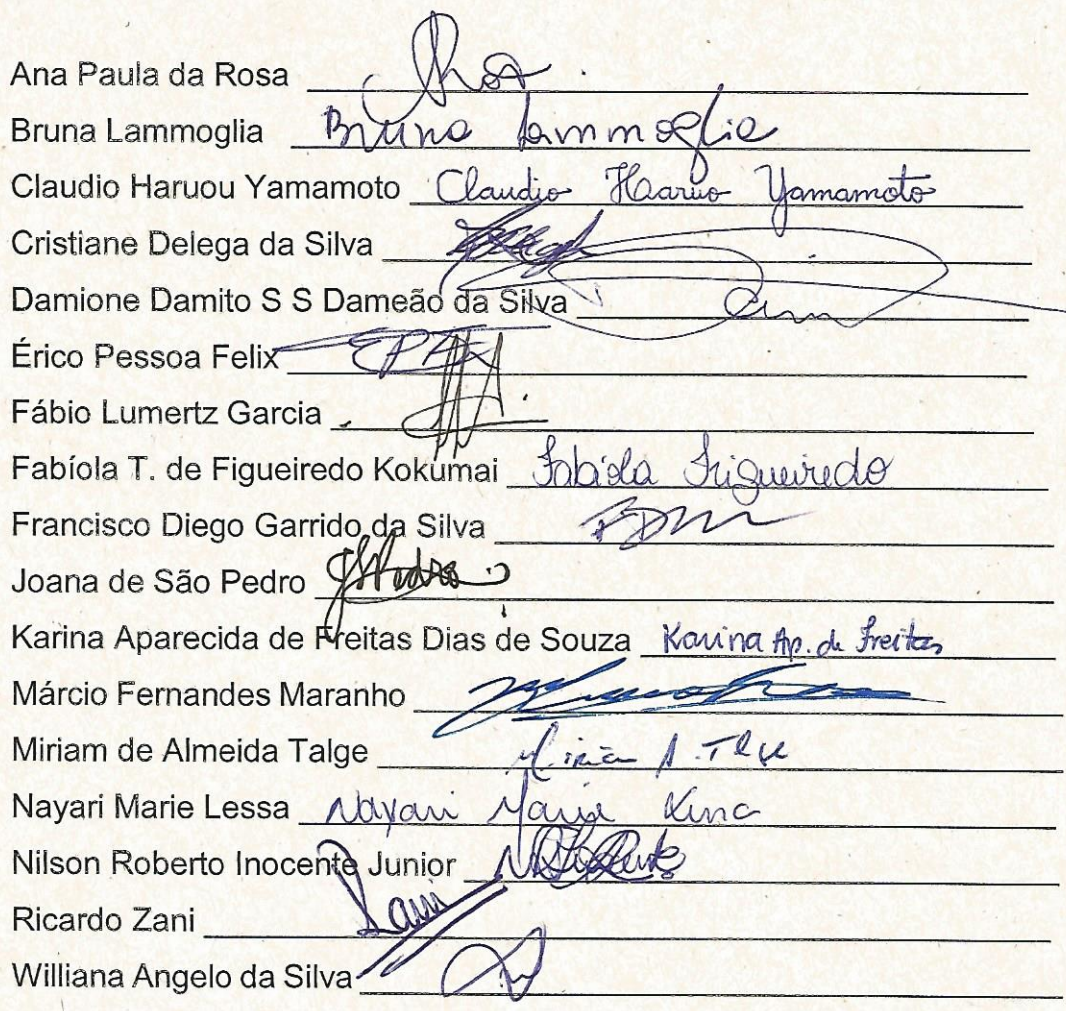 Ana Paula da Rosa
Bruna Lammoglia Bruna Lammoglia
Claudio Haruou Yamamoto Claudio Haruo Yamamoto
Cristiane Delega da Silva
Damione Damito S S Dameão da Silva
Érico Pessoa Felix
Fábio Lumertz Garcia
Fabíola T. de Figueiredo Kokumai Fabíola Figueiredo
Francisco Diego Garrido da Silva
Joana de São Pedro
Karina Aparecida de Freitas Dias de Souza Karina Ap. de Freitas
Márcio Fernandes Maranho
Miriam de Almeida Talge
Nayari Marie Lessa Nayari Marie
Nilson Roberto Inocente Junior
Ricardo Zani Zani
Williana Angelo da Silva